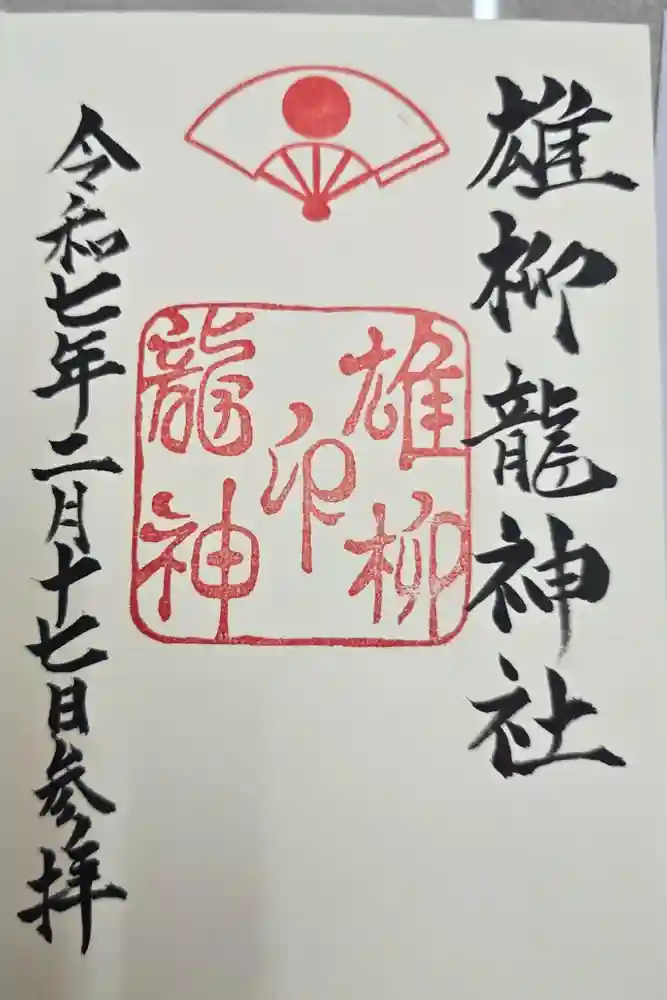 雄柳龍神社
雄柳
印
龍神
令和七年二月十七日参拝